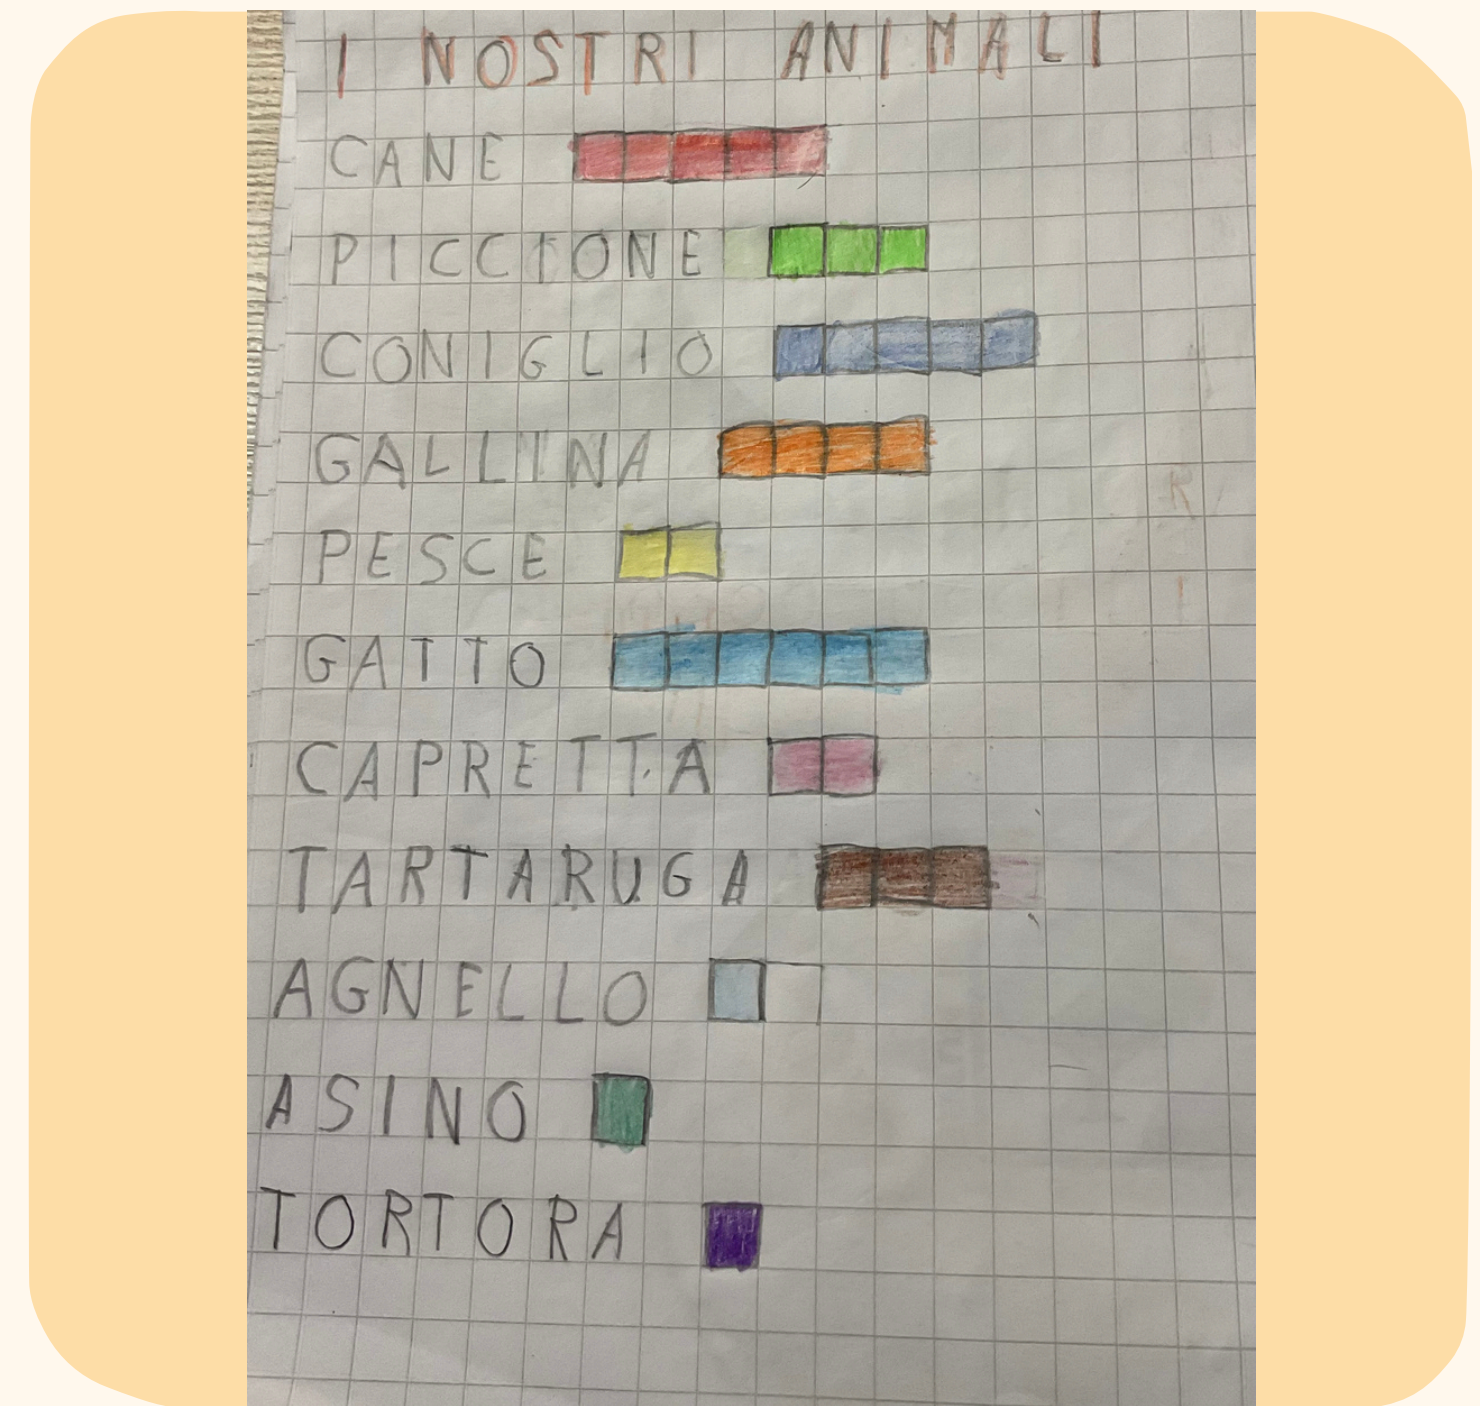 I NOSTRI ANIMALI
CANE
PICCIONE
CONIGLIO
GALLINA
PESCE
GATTO
CAPRETTA
TARTARUGA
AGNELLO
ASINO
TORTORA